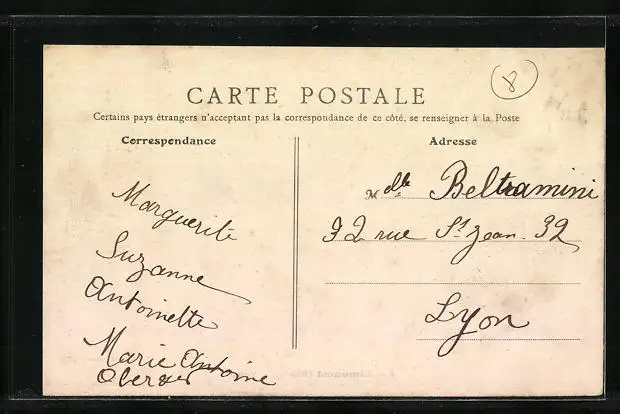 8
CARTE POSTALE
Certains pays étrangers n'acceptant pas la correspondance de ce côté, se renseigner à la Poste
Correspondance
Marguerite
Suzanne
Antoinette
Marie Antoine
Adresse
Melle Beltramini
32 rue St Jean. 32
Lyon